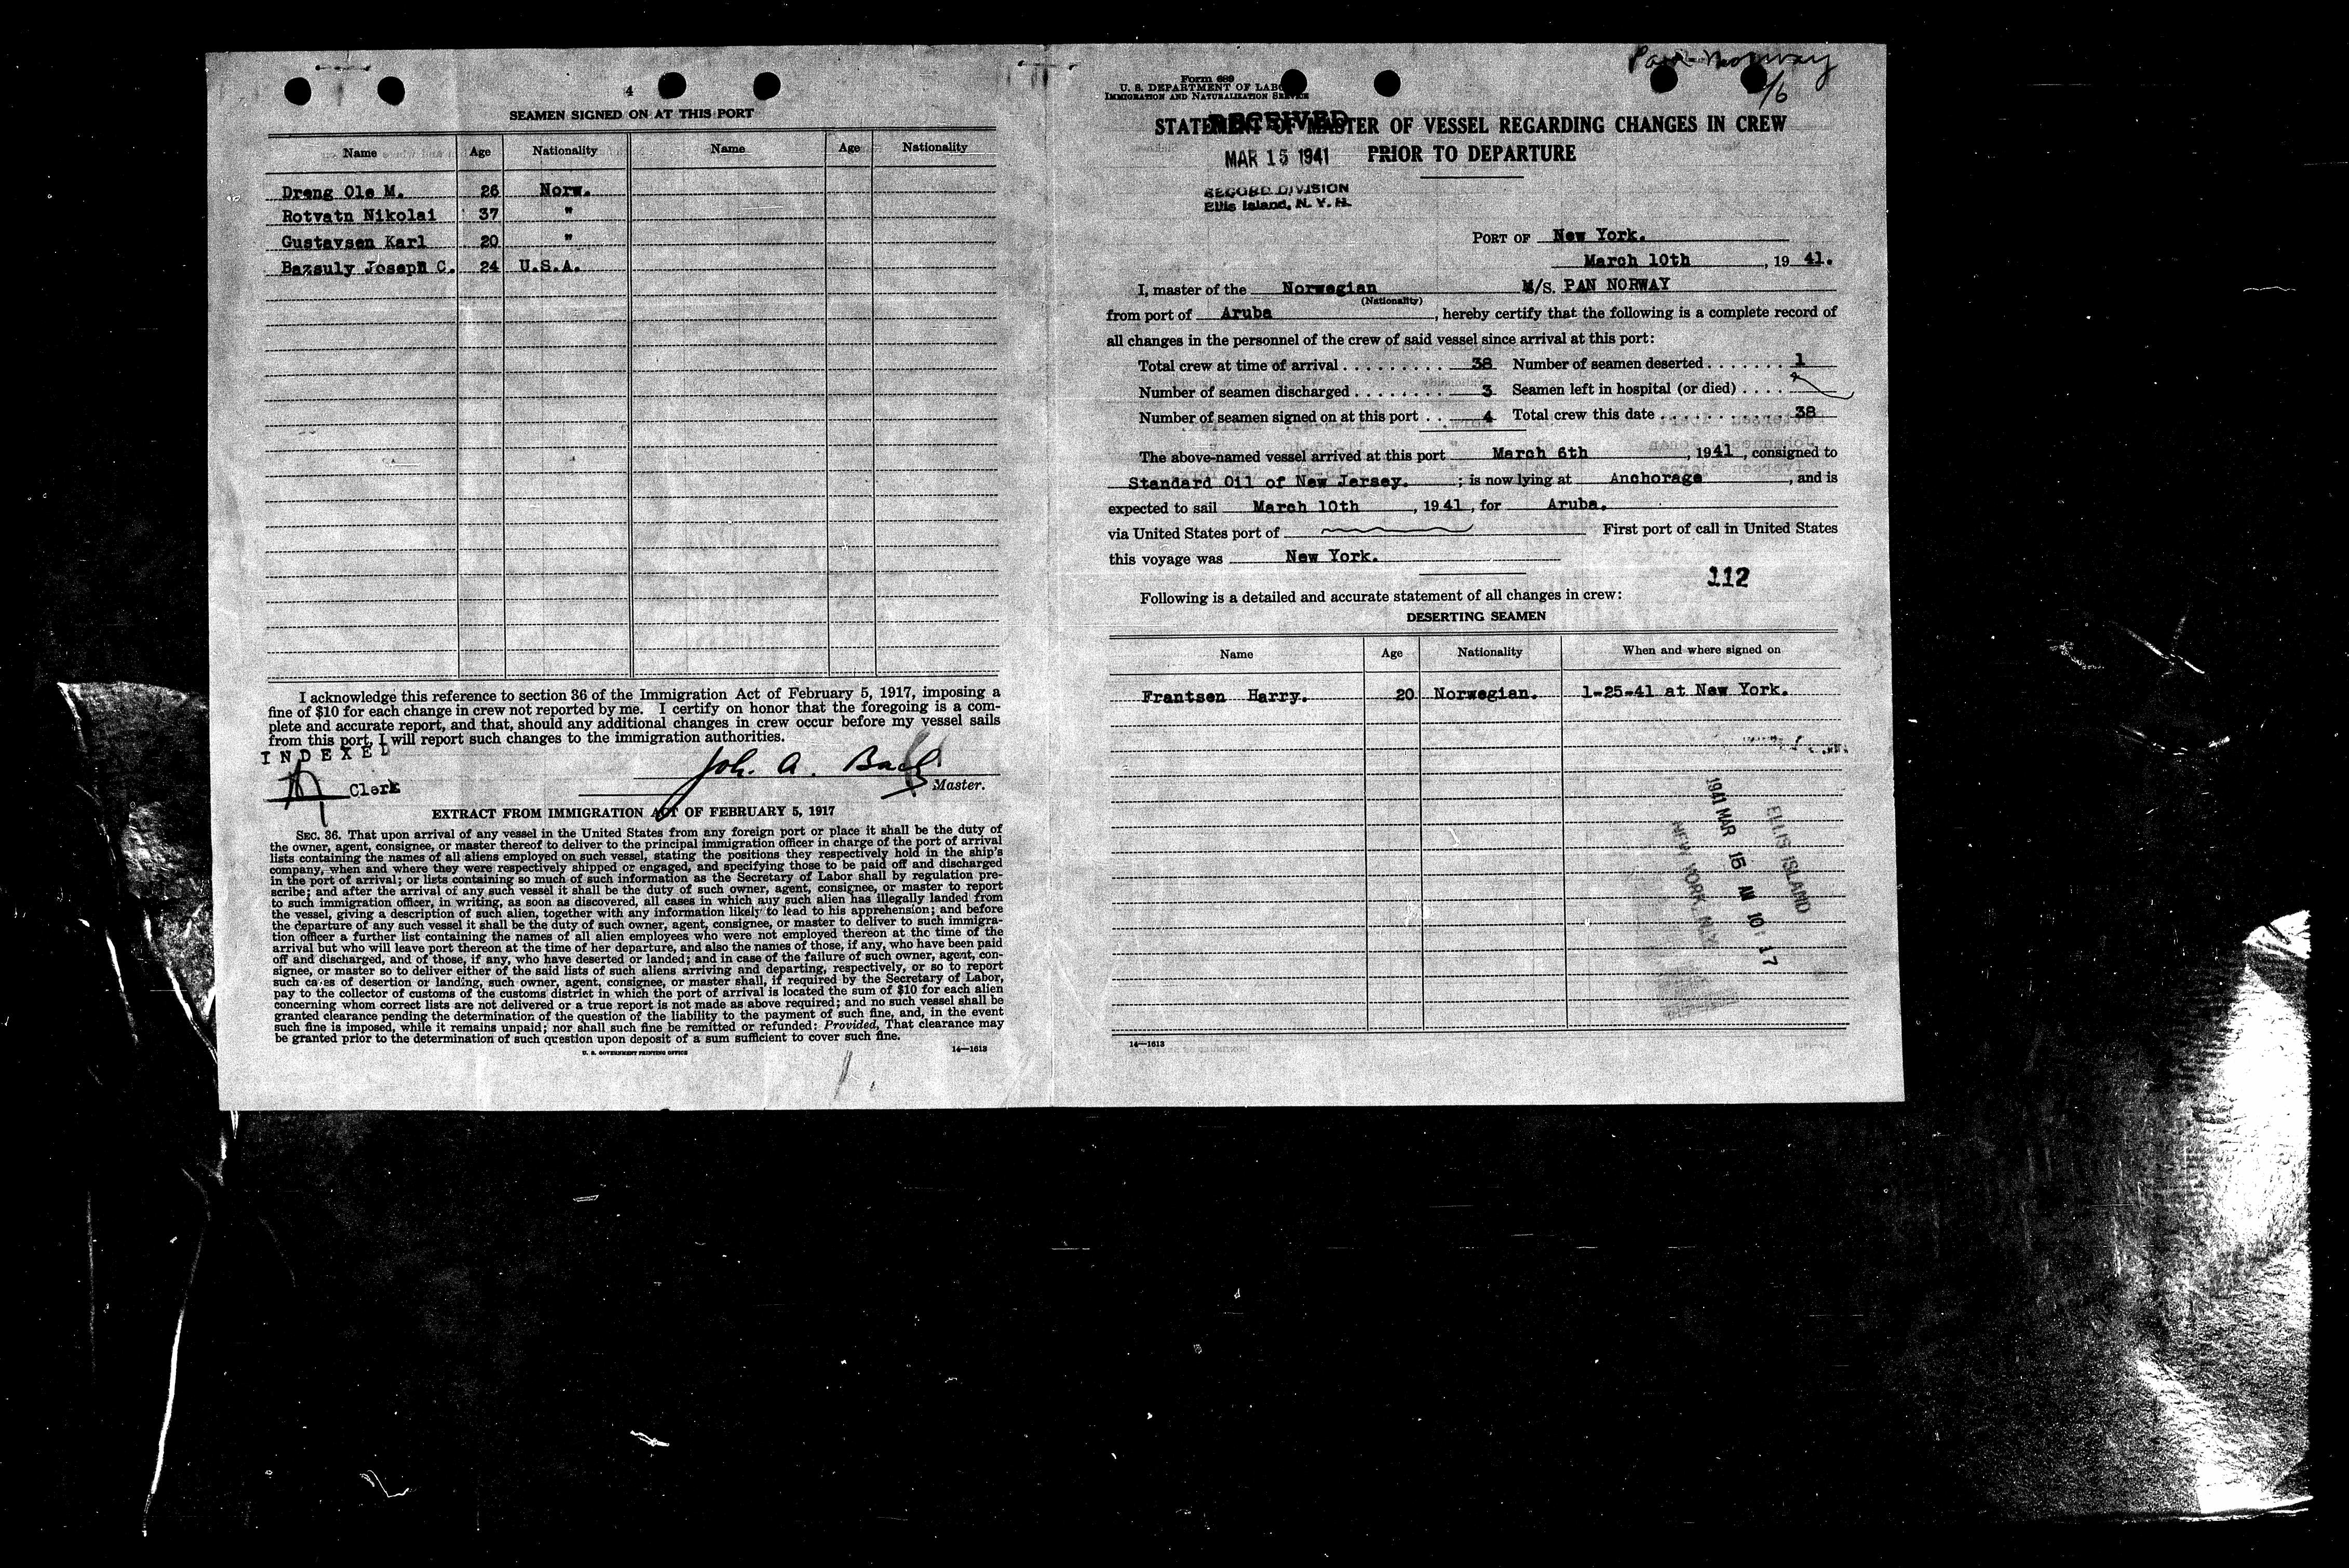 4
SEAMEN SIGNED ON AT THIS PORT
Name Age Nationality Name Age Nationality
Dreng Ole M. 26 Norw.
Rotvatn Nikolai 37 "
Gustavsen Karl 20 "
Bazsuly Joseph C. 24 U.S.A.
I acknowledge this reference to section 36 of the Immigration Act of February 5, 1917, imposing a
fine of $10 for each change in crew not reported by me. I certify on honor that the foregoing is a com-
plete and accurate report, and that, should any additional changes in crew occur before my vessel sails
from this port, I will report such changes to the immigration authorities.
INDEXED
Clerk
Joh. A. Bach
Master.
EXTRACT FROM IMMIGRATION ACT OF FEBRUARY 5, 1917
SEC. 36. That upon arrival of any vessel in the United States from any foreign port or place it shall be the duty of
the owner, agent, consignee, or master thereof to deliver to the principal immigration officer in charge of the port of arrival
lists containing the names of all aliens employed on such vessel, stating the positions they respectively hold in the ship's
company, when and where they were respectively shipped or engaged, and specifying those to be paid off and discharged
in the port of arrival; or lists containing so much of such information as the Secretary of Labor shall by regulation pre-
scribe; and after the arrival of any such vessel it shall be the duty of such owner, agent, consignee, or master to report
to such immigration officer, in writing, as soon as discovered, all cases in which any such alien has illegally landed from
the vessel, giving a description of such alien, together with any information likely to lead to his apprehension; and before
the departure of any such vessel it shall be the duty of such owner, agent, consignee, or master to deliver to such immigra-
tion officer a further list containing the names of all alien employees who were not employed thereon at the time of the
arrival but who will leave port thereon at the time of her departure, and also the names of those, if any, who have been paid
off and discharged, and of those, if any, who have deserted or landed; and in case of the failure of such owner, agent, con-
signee, or master so to deliver either of the said lists of such aliens arriving and departing, respectively, or so to report
such cases of desertion or landing, such owner, agent, consignee, or master shall, if required by the Secretary of Labor,
pay to the collector of customs of the customs district in which the port of arrival is located the sum of $10 for each alien
concerning whom correct lists are not delivered or a true report is not made as above required; and no such vessel shall be
granted clearance pending the determination of the question of the liability to the payment of such fine, and, in the event
such fine is imposed, while it remains unpaid; nor shall such fine be remitted or refunded: Provided, That clearance may
be granted prior to the determination of such question upon deposit of a sum sufficient to cover such fine.
U. S. GOVERNMENT PRINTING OFFICE 14—1613
Pan Norway
Form 689
U. S. DEPARTMENT OF LABOR
IMMIGRATION AND NATURALIZATION SERVICE
STATEMENT OF MASTER OF VESSEL REGARDING CHANGES IN CREW
PRIOR TO DEPARTURE
RECEIVED
MAR 15 1941
RECORD DIVISION
Ellis Island, N. Y. H.
PORT OF New York.
March 10th, 19 41.
I, master of the Norwegian M/S. PAN NORWAY
(Nationality)
from port of Aruba, hereby certify that the following is a complete record of
all changes in the personnel of the crew of said vessel since arrival at this port:
Total crew at time of arrival . . . . . . . . . 38 Number of seamen deserted . . . . . . . 1
Number of seamen discharged . . . . . . . . 3 Seamen left in hospital (or died) . . . .
Number of seamen signed on at this port . . 4 Total crew this date . . . . . . . . . 38
The above-named vessel arrived at this port March 6th, 1941, consigned to
Standard Oil of New Jersey. ; is now lying at Anchorage, and is
expected to sail March 10th, 1941, for Aruba.
via United States port of First port of call in United States
this voyage was New York.
112
Following is a detailed and accurate statement of all changes in crew:
DESERTING SEAMEN
Name Age Nationality When and where signed on
Frantsen Harry. 20 Norwegian. 1-25-41 at New York.
ELLIS ISLAND
1941 MAR 15 AM 10 17
NEW YORK, N.Y.
14—1613